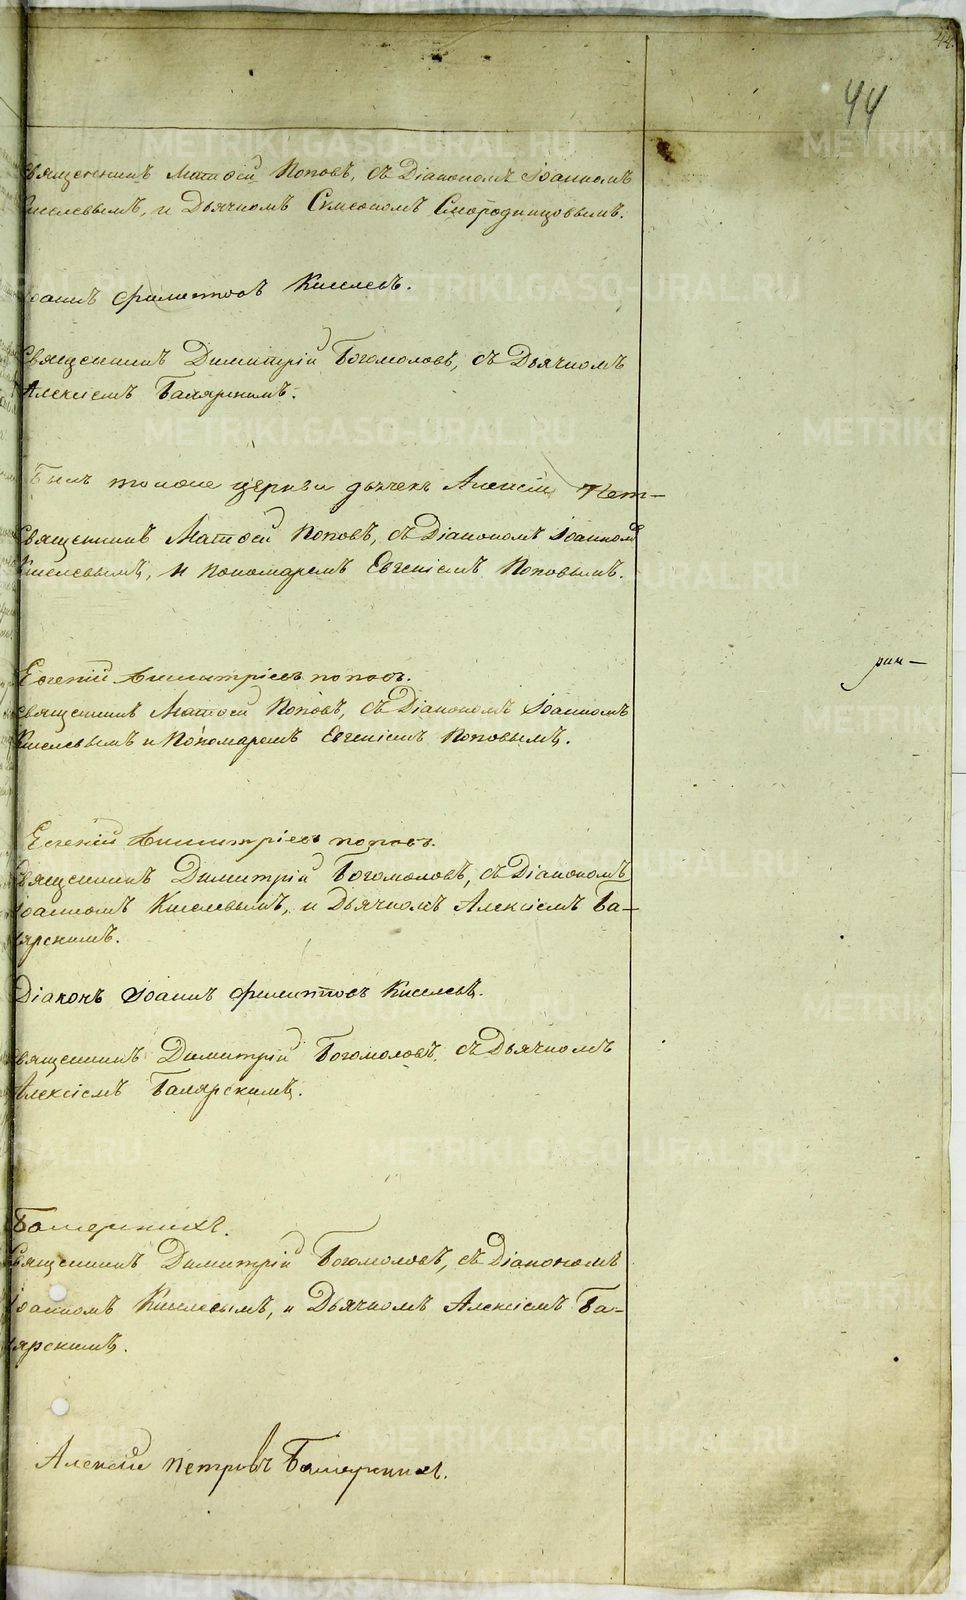 44.
44
Священникъ Матѳей Поповъ, съ Діакономъ Іоанномъ
Киселевымъ, и Дьячкомъ Симеономъ Смородинцовымъ.
Іоаннъ Филиттовъ Киселевъ.
Священникъ Димитрій Богомоловъ, съ Дьячкомъ
Алексіемъ Баляркинымъ.
церкви дьячекъ Алексѣй Пет-
Священникъ Матѳей Поповъ, съ Діакономъ Іоанномъ
Киселевымъ, и Пономаремъ Евгеніемъ Поповымъ.
ри-
Евгеній Димитріевъ поповъ.
Священникъ Матѳей Поповъ, съ Діакономъ Іоанномъ
Киселевымъ и Пономаремъ Евгеніемъ Поповымъ.
Евгеній Димитріевъ поповъ.
Священникъ Димитрій Богомоловъ, съ Діакономъ
Іоанномъ Киселевымъ, и Дьячкомъ Алексіемъ Ба-
лярскимъ.
Діаконъ Іоаннъ Филиттовъ Киселевъ.
Священникъ Димитрій Богомоловъ, съ Дьячкомъ
Алексіемъ Балярскимъ.
Священникъ Димитрій Богомоловъ, съ Діакономъ
Іоанномъ Киселевымъ, и Дьячкомъ Алексіемъ Ба-
лярскимъ.
Алексѣй Петровъ
METRIKI.GASO-URAL.RU